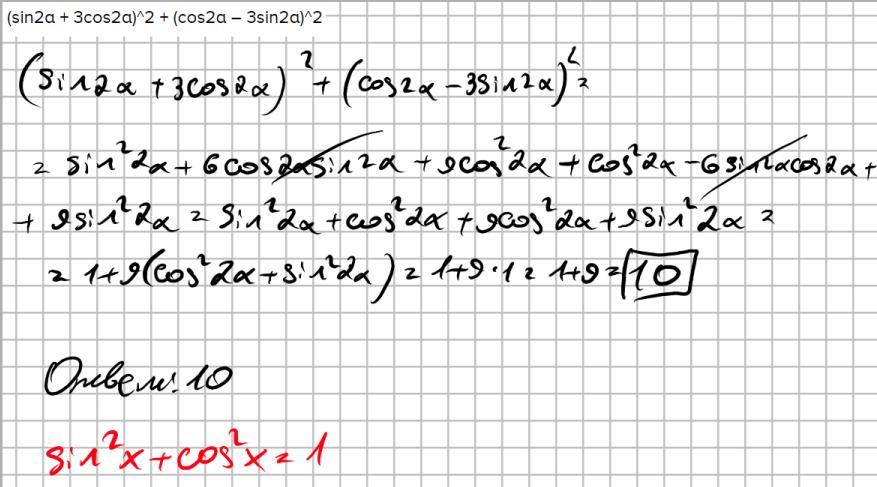 (sin2α + 3cos2α)^2 + (cos2α – 3sin2α)^2
(sin2α + 3cos2α)² + (cos2α – 3sin2α)² =
= sin²2α + 6cos2αsin2α + 9cos²2α + cos²2α – 6sin2αcos2α +
+ 9sin²2α = sin²2α + cos²2α + 9cos²2α + 9sin²2α =
= 1+9(cos²2α + sin²2α) = 1+9·1 = 1+9 = 10
Ответ: 10
sin²x + cos²x = 1